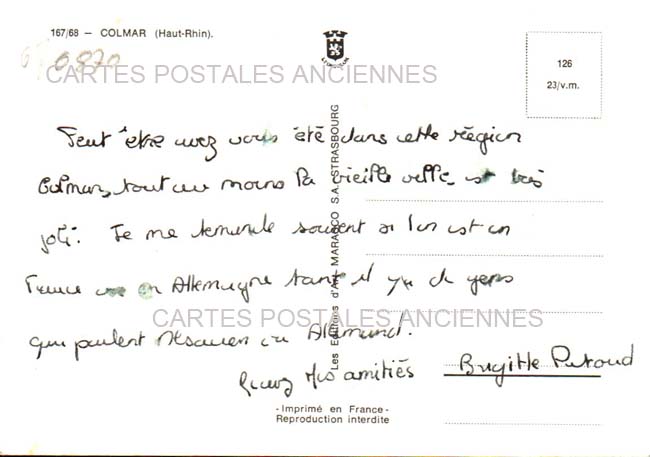 167/68 – COLMAR (Haut-Rhin).
0870
CARTES POSTALES ANCIENNES
126
23/v.m.
Peut être avez vous été dans cette région
Colmar, tout au moins la vieille ville est très
joli. Je me demande souvent si l'on est en
France ou en Allemagne tant il y a de gens
qui parlent Alsacien ou Allemand.
CARTES POSTALES ANCIENNES
mes amitiés
Brigitte
Les Editions d'Art MARASCO S.A. STRASBOURG
- Imprimé en France -
Reproduction interdite